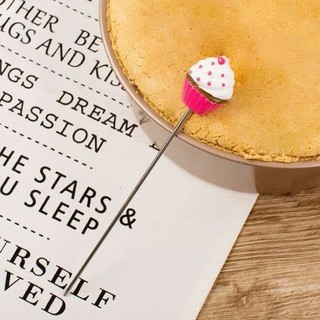 OTHER BE
UGS AND KI
NGS DREAM
PASSION
HE STARS &
U SLEEP
URSELF
VED